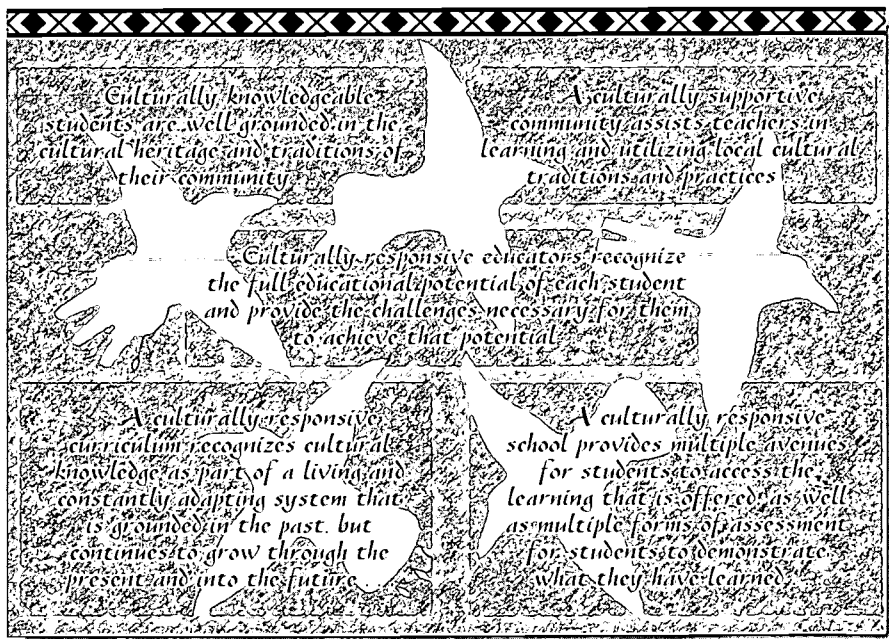 Culturally knowledgeable
students are well grounded in the
cultural heritage and traditions of
their community
A culturally supportive
community assists teachers in
learning and utilizing local cultural
traditions and practices
Culturally responsive educators recognize
the full educational potential of each student
and provide the challenges necessary for them
to achieve that potential
A culturally responsive
curriculum recognizes cultural
knowledge as part of a living and
constantly adapting system that
is grounded in the past, but
continues to grow through the
present and into the future
A culturally responsive
school provides multiple avenues
for students to access the
learning that is offered, as well
as multiple forms of assessment
for students to demonstrate
what they have learned